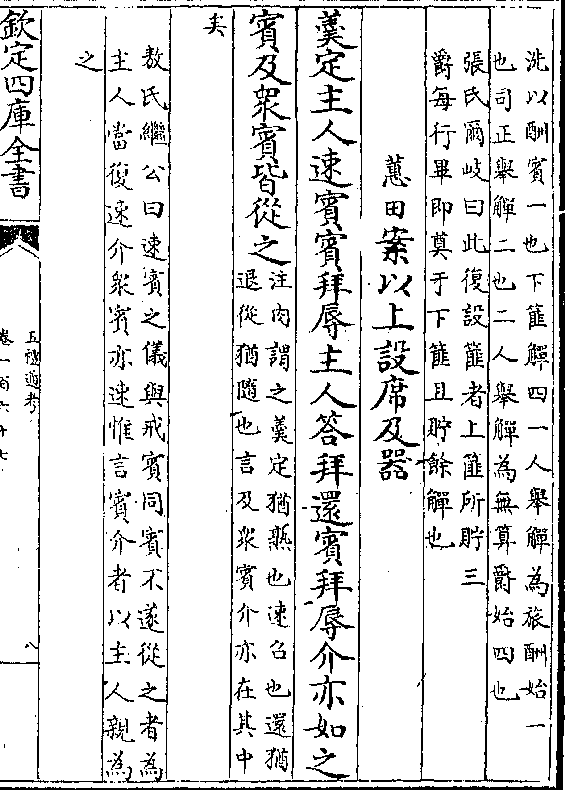 洗以酬賓一也下篚觶四一人舉觶為旅酬始一
也司正舉觶二也二人舉觶為無算爵始四也
張氏爾岐曰此復設篚者上篚所貯三
爵每行畢即奠于下篚且貯餘觶也
蕙田案以上設席及器
羹定主人速賓賓拜辱主人答拜還賓拜辱介亦如之
賓及衆賓皆從之
注肉謂之羹定猶孰也速召也還猶
退從猶隨也言及衆賓介亦在其中
矣
敖氏繼公曰速賓之儀與戒賓同賓不遂從之者為
主人當復速介衆賓亦速惟言賓介者以主人親為
之
欽定四庫全書
五禮通考
卷一百六十七
八